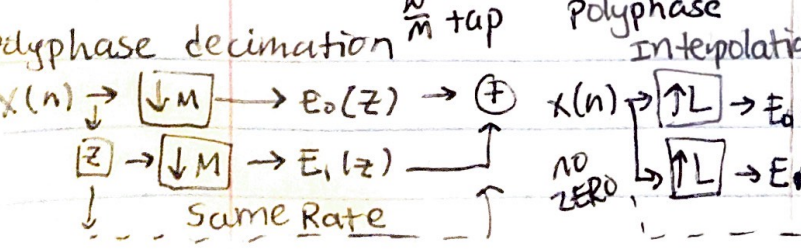 N/M tap
Polyphase
olyphase decimation
Interpolatio
x(n) → ↓M → E₀(Z) → +
x(n) → ↑L → E₀
Z → ↓M → E₁(z)
↑L → E
NO
ZERO
Same Rate